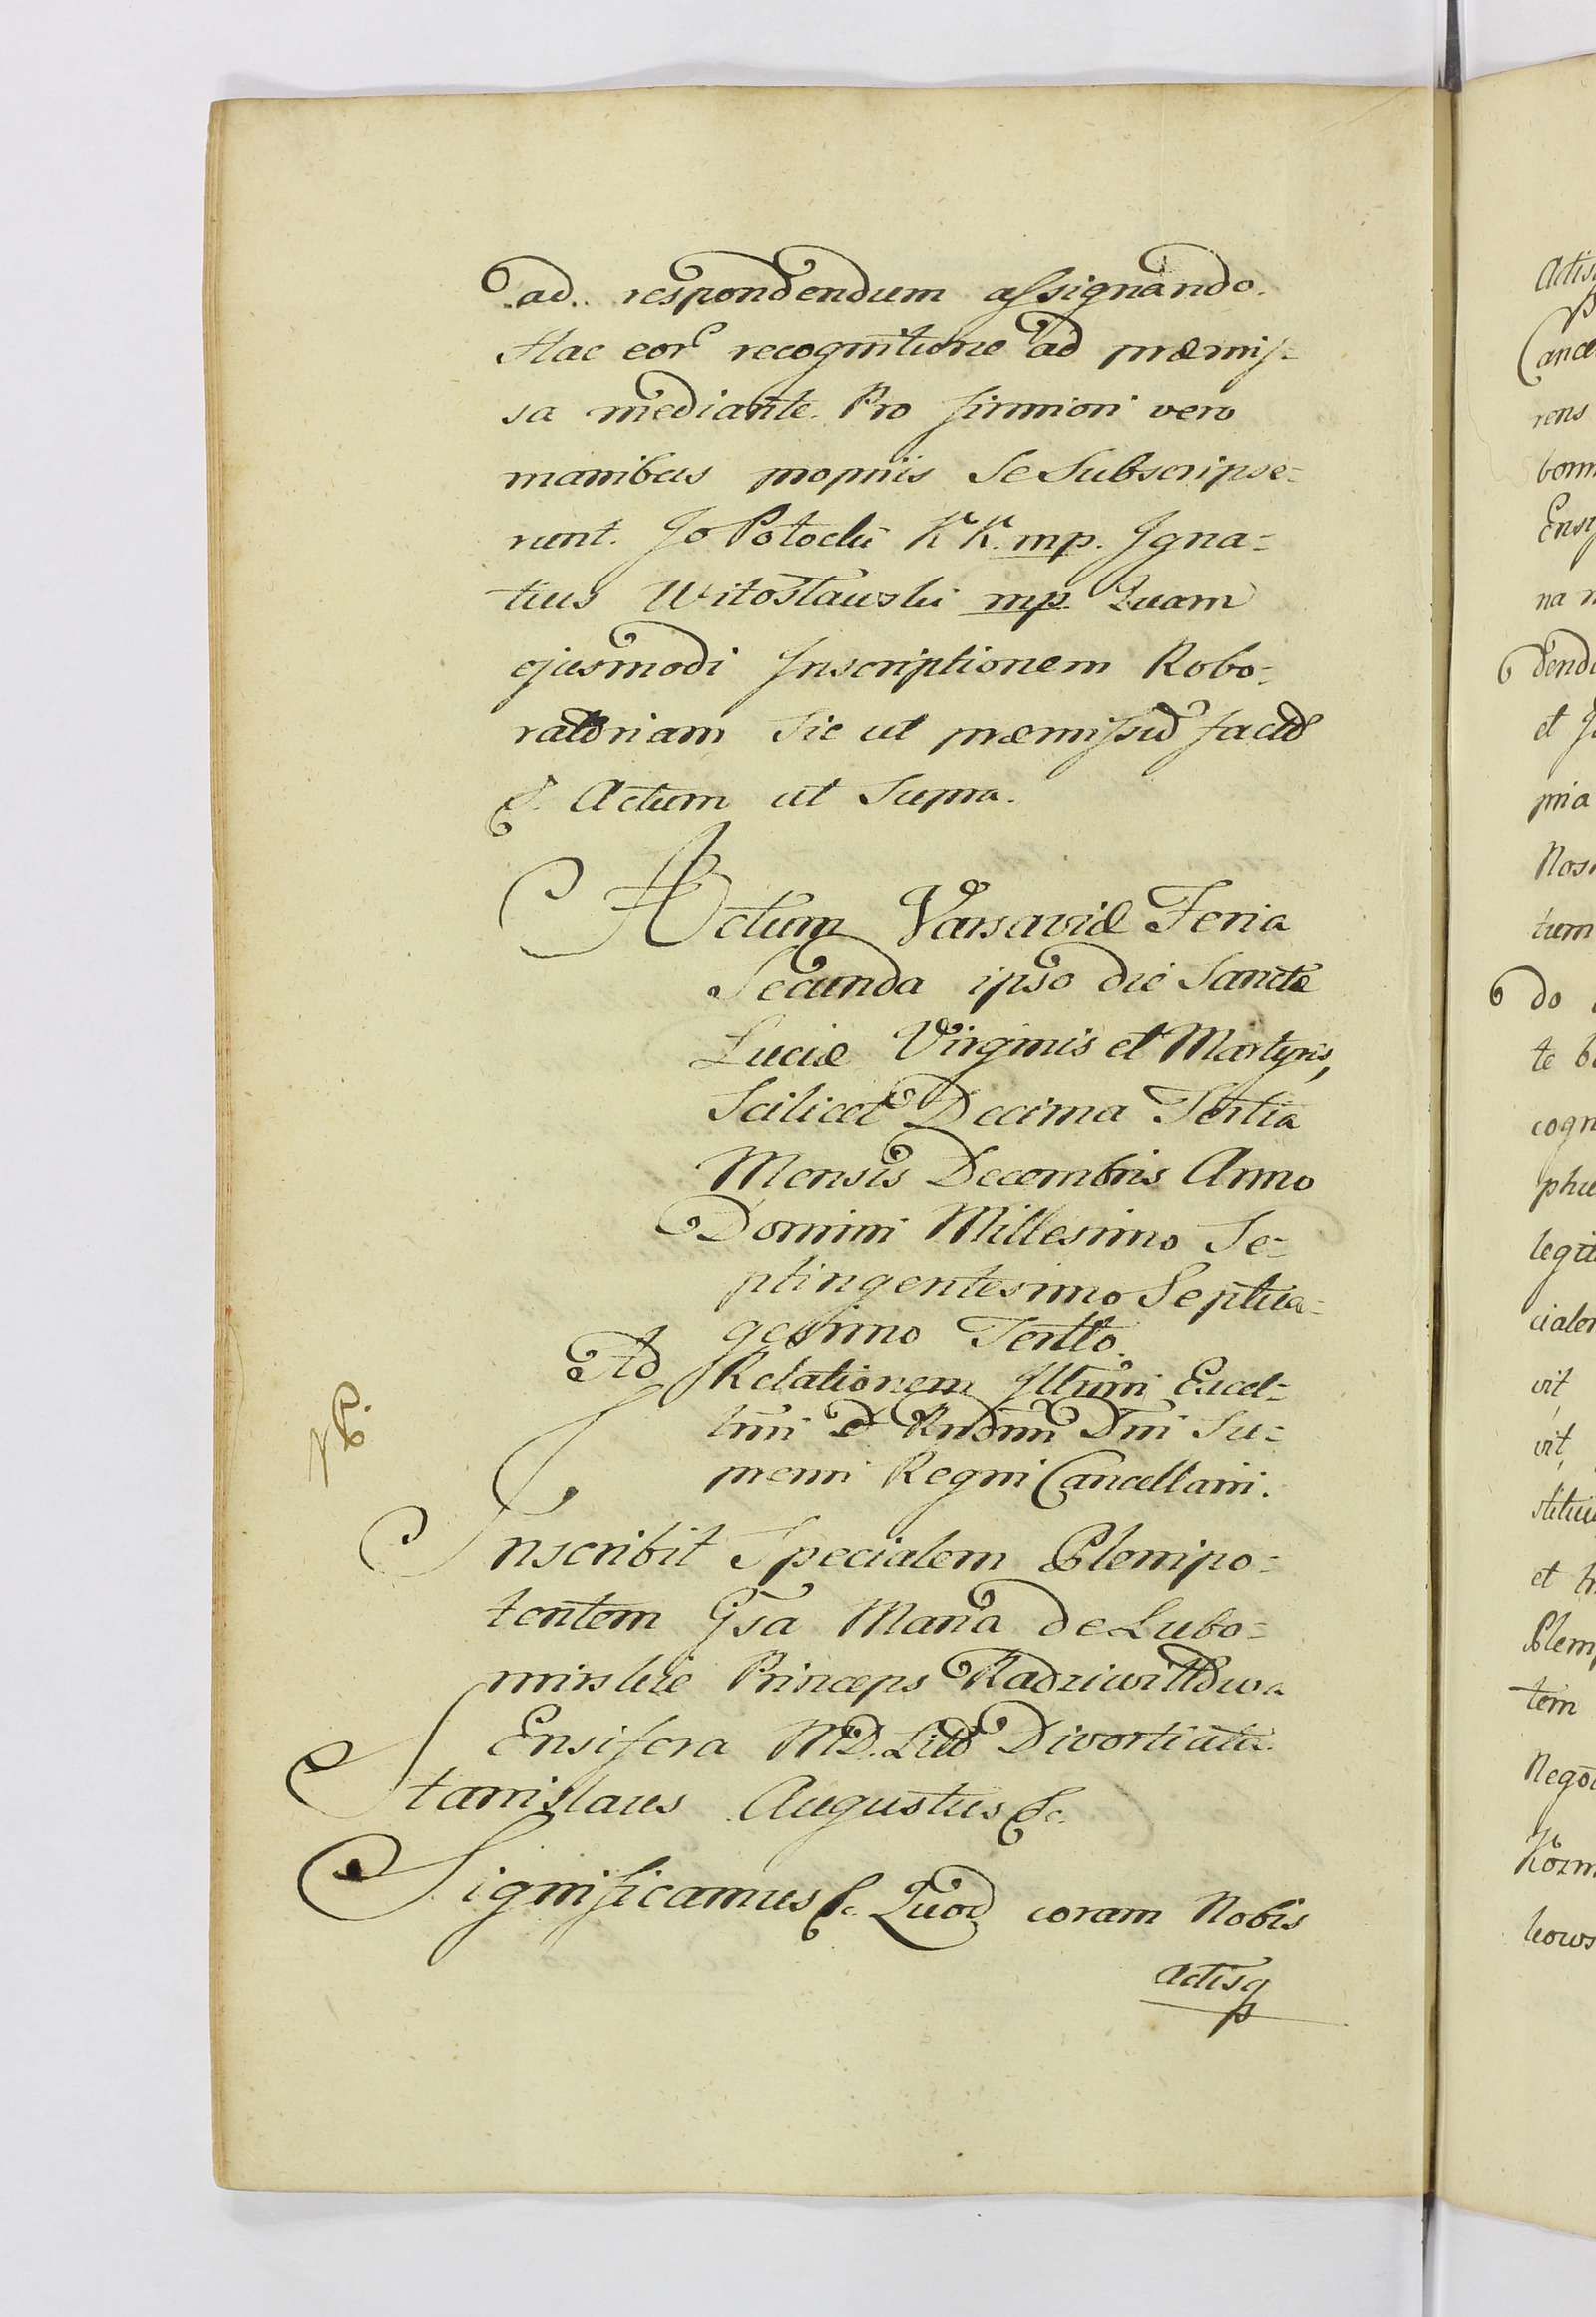 ad. respondendum assignando.
Hac eor recognitione ad præmis=
sa mediante. Pro firmiori vero
manibus propriis Se Subscripse=
runt. Jo Potocki KK. mp. Igna=
tius Witosławski mp. Quam
ejusmodi Inscriptionem Robo=
ratoriam Sic ut præmissũ facto
&. Actum ut Supra.
Actum Varsaviæ Feria
Secunda ipso die Sanctæ
Luciæ Virginis et Martyris,
Scilicet Decima Tertia
Mensis Decembris Anno
Domini Millesimo Se=
ptingentesimo Septua=
gesimo Tertio.
Ad Relationem Illmi Excel=
lmi & Rndmi Dni Su=
premi Regni Cancellarii.
Inscribit Specialem Plenipo=
tentem Gsa Maria de Lubo=
mirskie Princeps Radziwiłłowa
Ensifera M.D. Litt Divortiata.
Stanislaus Augustus &c.
Significamus &c. Quod coram Nobis
actisq
Actis
Cance
rens
bonn
Ensi
na n
dend
et J
pria
Nos
tum
do
te b
cogn
phu
legit
cialer
vit,
vit,
stitu
et
Plem
tem
Nego
Kozm
kows